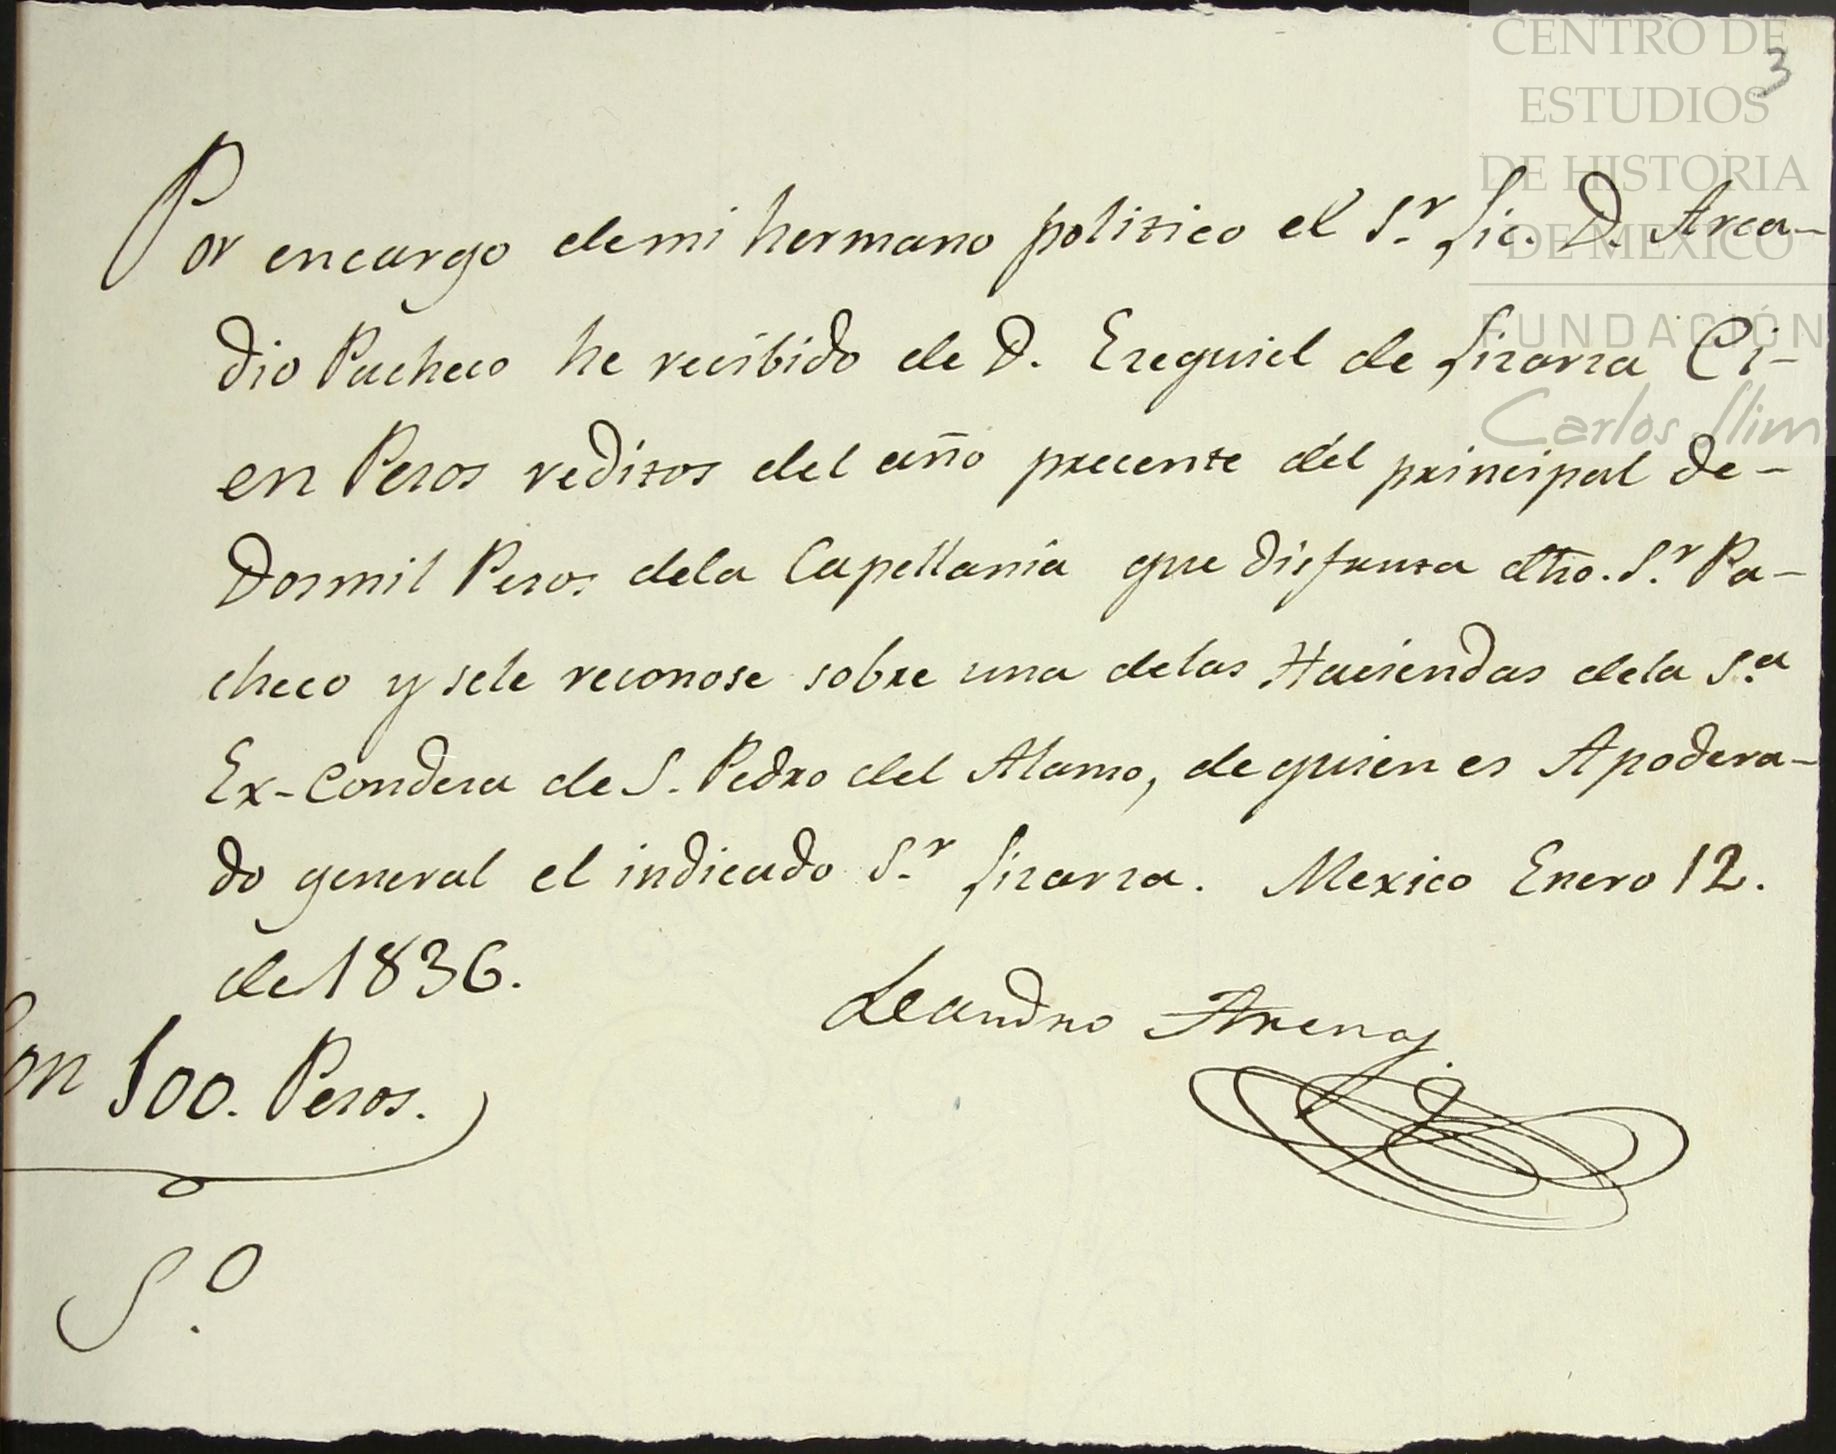 CENTRO DE
ESTUDIOS
DE HISTORIA
DE MEXICO
FUNDACIÓN
Carlos Slim
3
Por encargo demi hermano politico el S.r Lic. D. Arca-
dio Pacheco he recibido de D. Ezequiel de Lizarza Ci-
en Pesos reditos del año precente del principal de-
Dosmil Pesos dela Capellania que disfruta dho. S.r Pa-
checo y sele reconose sobre una delas Haciendas dela S.a
Ex-Condesa de S. Pedro del Alamo, de quien es Apodera-
do general el indicado S.r Lizarza. Mexico Enero 12.
de 1836.
Leandro Arenas
Son 100. Pesos.
S.o